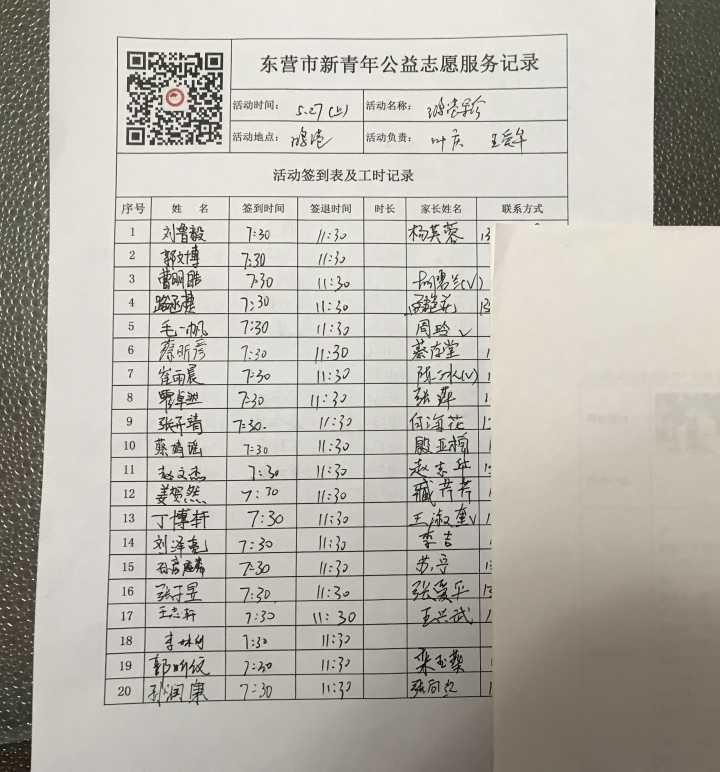 东营市新青年公益志愿服务记录
活动时间： 5.27(上) 活动名称：
活动地点： 活动负责： 叶庆
活动签到表及工时记录
序号 姓 名 签到时间 签退时间 时长 家长姓名 联系方式
1 刘鲁毅 7:30 11:30 杨英蓉 13
2 郭文博 7:30 11:30
3 曹明皓 7:30 11:30
4 7:30 11:30 13
5 毛一帆 7:30 11:30 周玲 √
6 蔡昕彦 7:30 11:30 蔡在堂 1
7 崔雨晨 7:30 11:30 1
8 7:30 11:30 张萍
9 张子靖 7:30. 11:30 何海花
10 蔡靖瑶 7:30 11:30 殷亚楠
11 赵文杰 7:30 11:30
12 姜贺然 7:30 11:30 臧芹芹
13 丁博轩 7:30 11:30 √
14 刘泽亮 7:30 11:30 李吉
15 7:30 11:30
16 张子昱 7:30 11:30 张爱平 13
17 王志轩 7:30 11:30 王兴武 1
18 7:30 11:30
19 7:30 11:30 栾玉燕
20 孙润康 7:30 11:30